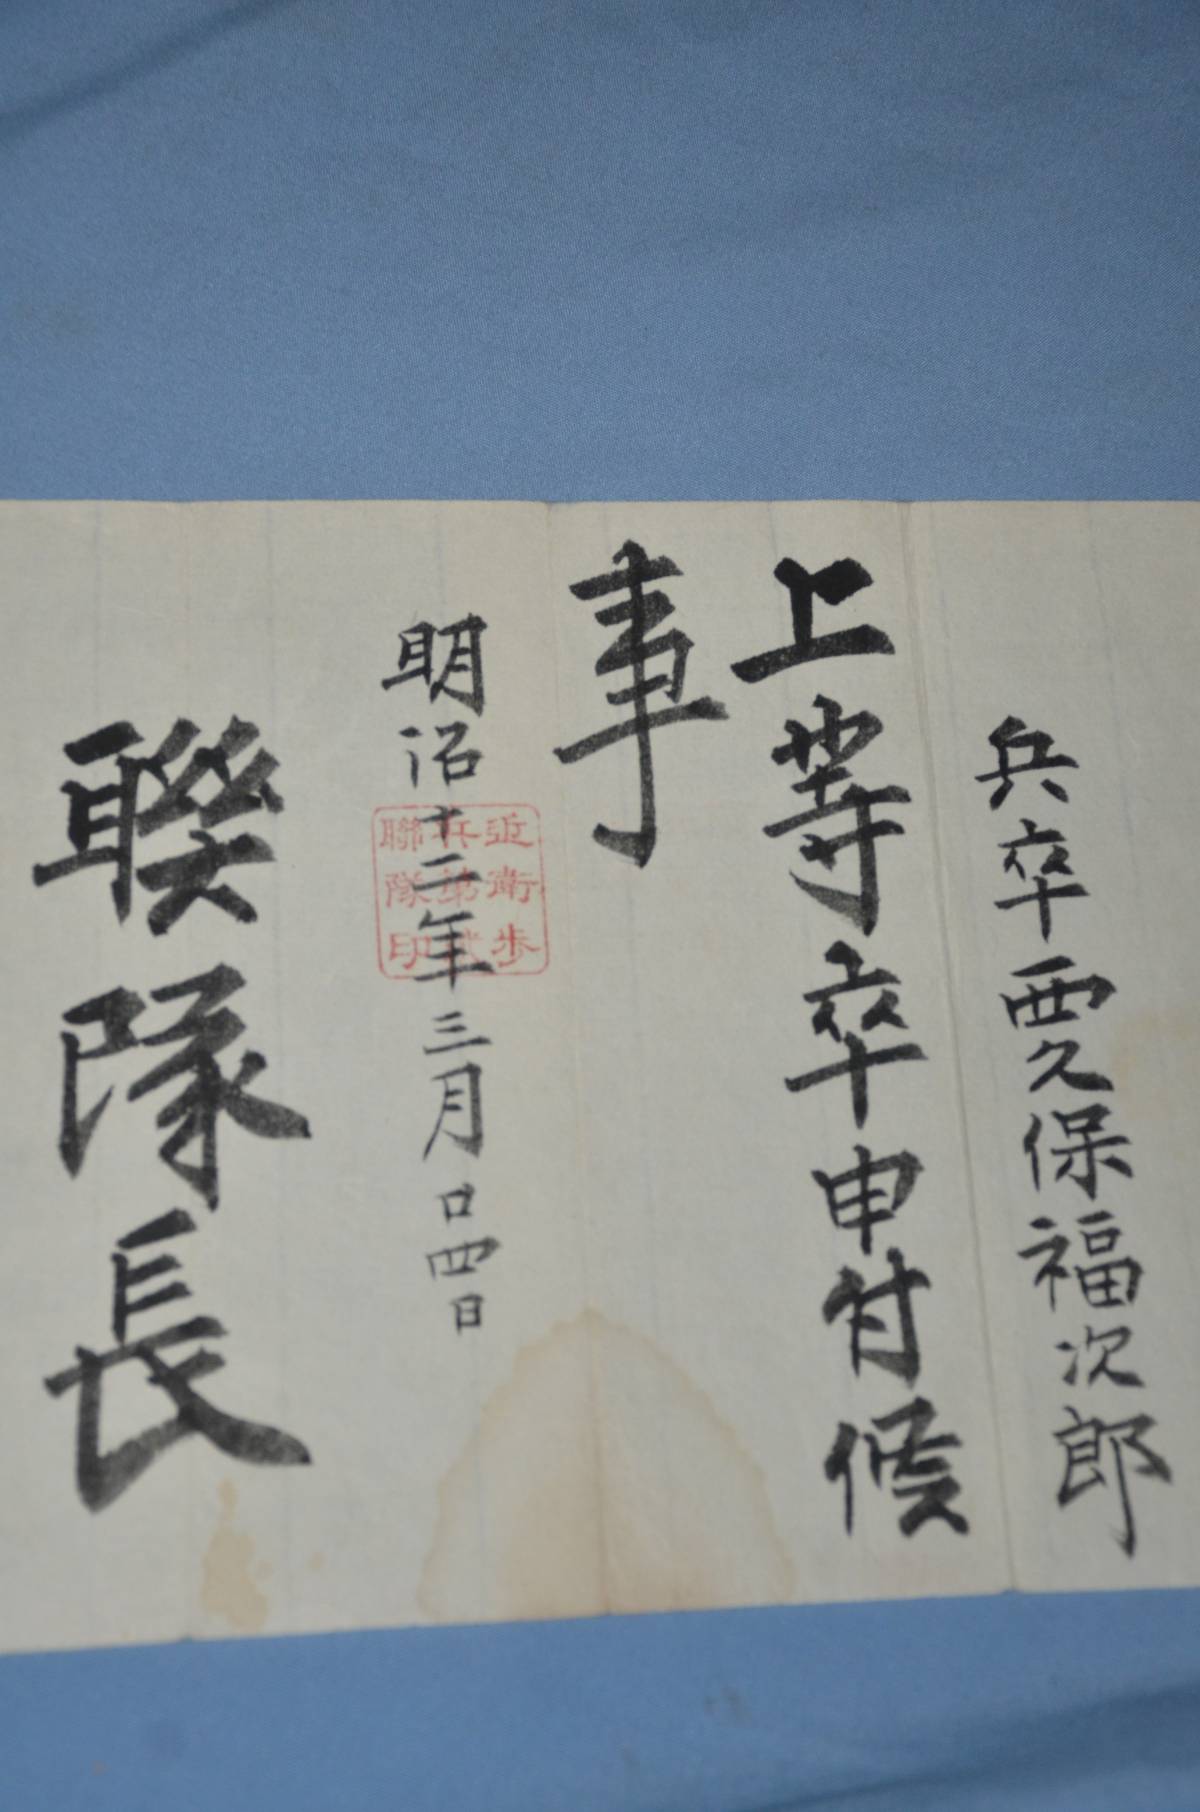 兵卒西久保福次郎
上等卒申付候
事
明治十二年三月廿四日
近衛歩
兵第弐
聯隊印
聯隊長